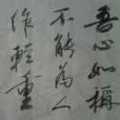 吾心如稱
不能為人
作輕重